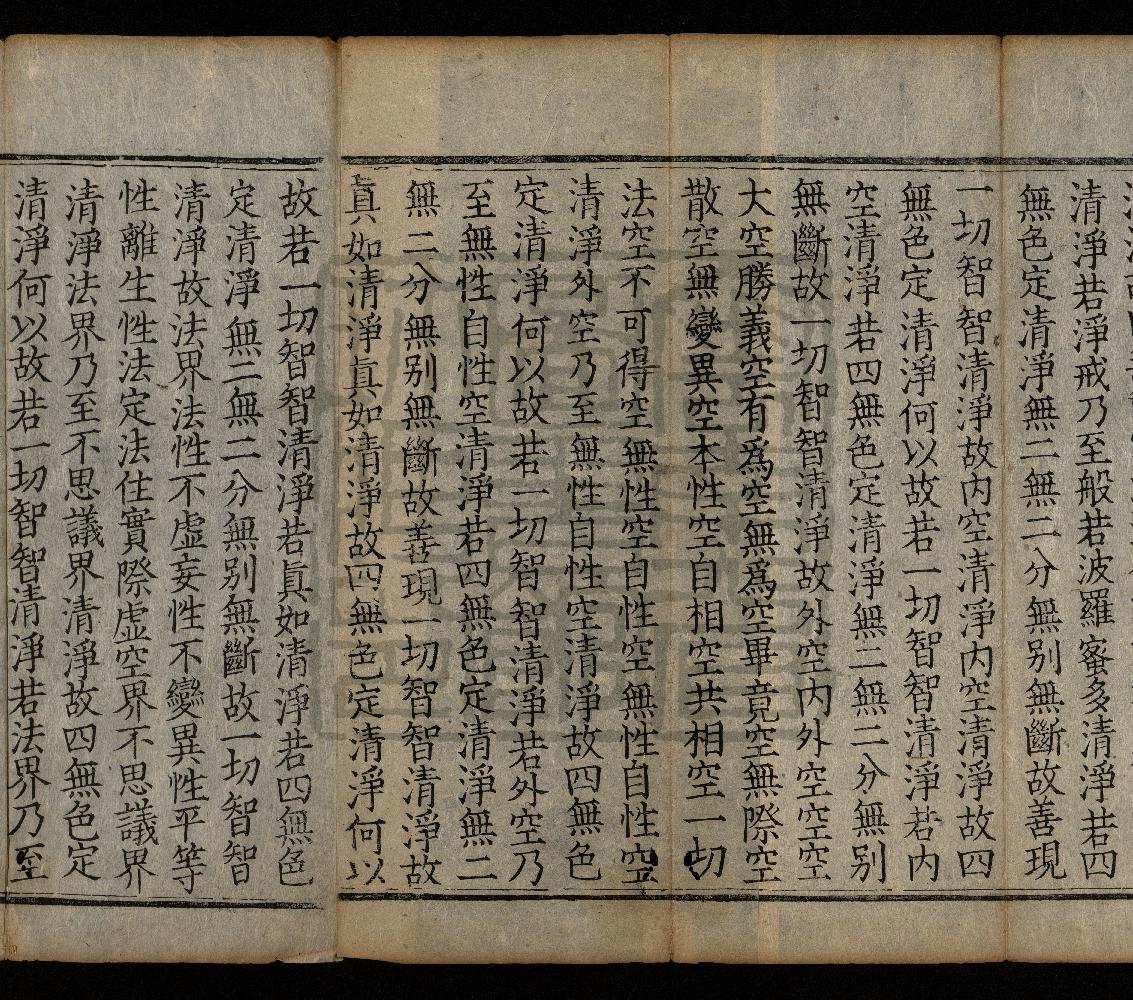 清淨若淨戒乃至般若波羅蜜多清淨若四
無色定清淨無二無二分無別無斷故善現
一切智智清淨故內空清淨內空清淨故四
無色定清淨何以故若一切智智清淨若內
空清淨若四無色定清淨無二無二分無別
無斷故一切智智清淨故外空內外空空空
大空勝義空有為空無為空畢竟空無際空
散空無變異空本性空自相空共相空一切
法空不可得空無性空自性空無性自性空
清淨外空乃至無性自性空清淨故四無色
定清淨何以故若一切智智清淨若外空乃
至無性自性空清淨若四無色定清淨無二
無二分無別無斷故善現一切智智清淨故
真如清淨真如清淨故四無色定清淨何以
故若一切智智清淨若真如清淨若四無色
定清淨無二無二分無別無斷故一切智智
清淨故法界法性不虛妄性不變異性平等
性離生性法定法住實際虛空界不思議界
清淨法界乃至不思議界清淨故四無色定
清淨何以故若一切智智清淨若法界乃至